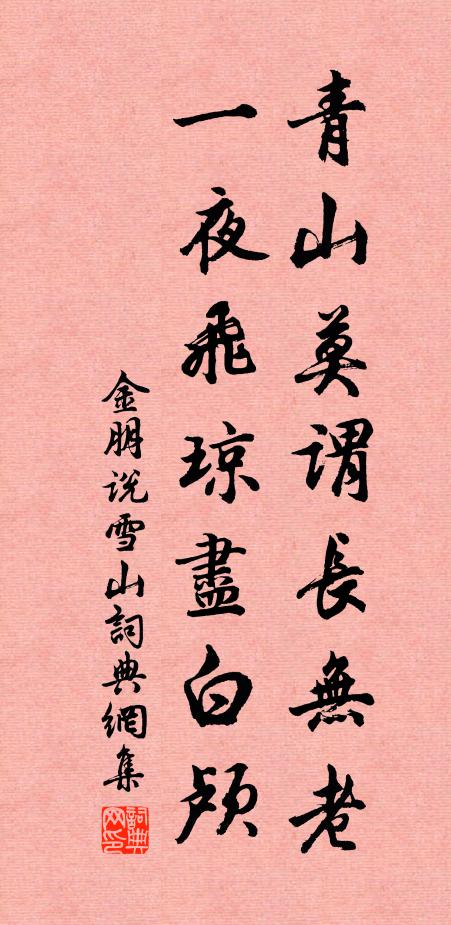 青山莫謂長無老
一夜飛琼盡白颅
金朋説雪山詞典網集
詞典网印